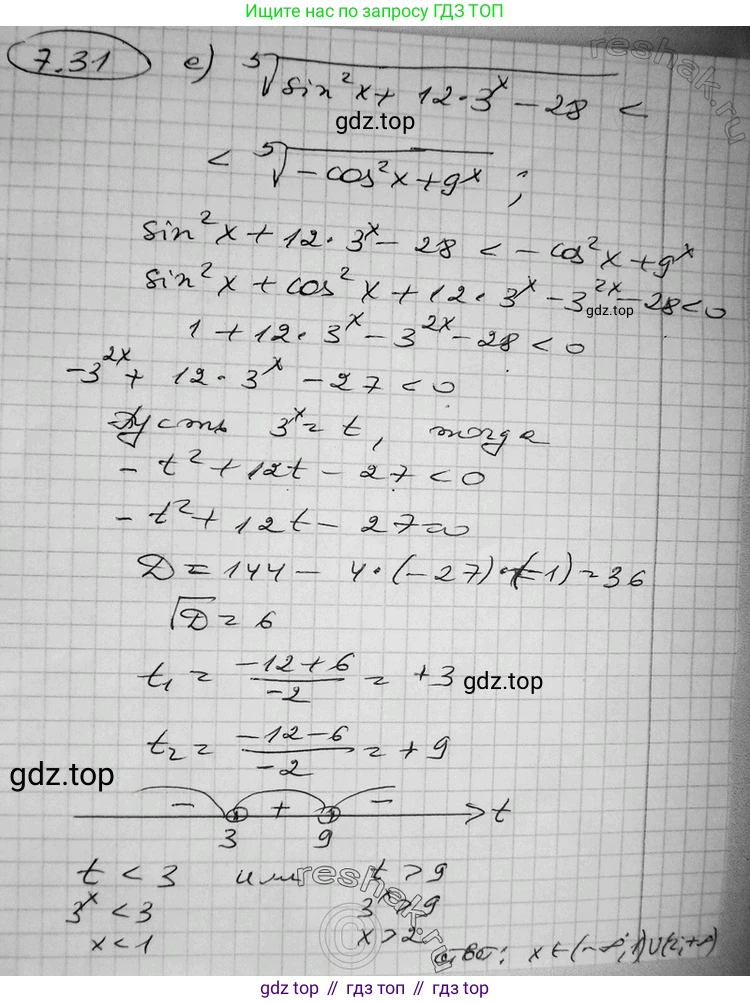 Ищите нас по запросу ГДЗ ТОП
7.31 е) ⁵√(sin²x + 12·3ˣ − 28) <
gdz.top
< ⁵√(−cos²x + 9ˣ) ;
sin²x + 12·3ˣ − 28 < −cos²x + 9ˣ
sin²x + cos²x + 12·3ˣ − 3²ˣ − 28 < 0
gdz.top
1 + 12·3ˣ − 3²ˣ − 28 < 0
−3²ˣ + 12·3ˣ − 27 < 0
Пусть 3ˣ = t, тогда
− t² + 12t − 27 < 0
− t² + 12t − 27 = 0
D = 144 − 4·(−27)·(−1) = 36
√D = 6
t₁ = (−12+6)/(−2) = +3
gdz.top
t₂ = (−12−6)/(−2) = +9
gdz.top
− + − t
3 9
t < 3 или t > 9
3ˣ < 3 3ˣ > 9
x < 1 x > 2
Ответ: x ∈ (−∞; 1) ∪ (2; +∞)
reshak.ru
reshak.ru
gdz.top // gdz.top // gdz.top